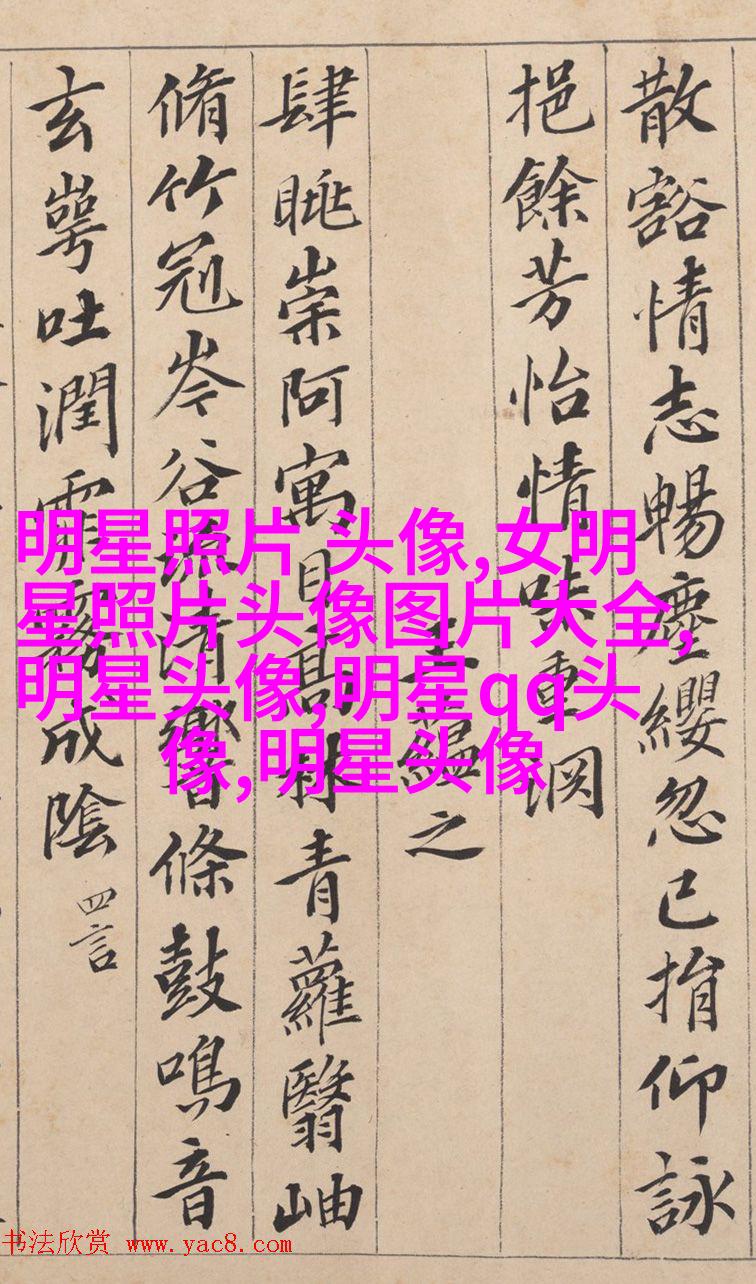 散豁情志暢塵纓忽已捐仰詠
挹餘芳怡情味重淵
蘊之
肆眺崇阿寓目高林青蘿翳岫
脩竹冠岑谷流清響條鼓鳴音
玄崿吐潤霏霧成陰 四言
明星照片 头像,女明
星照片头像图片大全,
明星头像,明星qq头
像,明星头像
书法欣赏 www.yac8.com